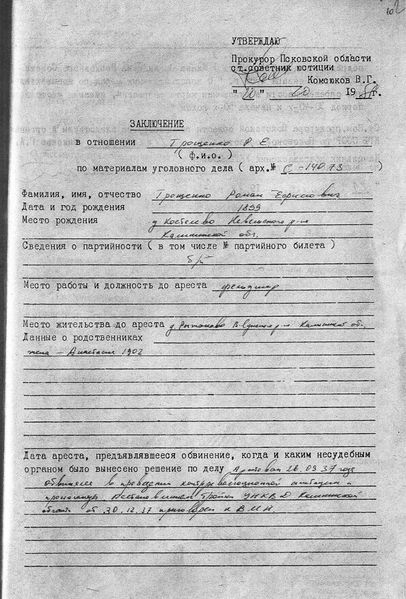 УТВЕРЖДАЮ
Прокурор Псковской области
ст.советник юстиции
Комсюков В.Г.
19
ЗАКЛЮЧЕНИЕ
в отношении Трощенко Р. Е.
( ф.и.о. )
по материалам уголовного дела ( арх.№ С-14073
Фамилия, имя, отчество Трощенко Роман Борисович
Дата и год рождения 1899
Место рождения д Костелево Невельского р-на
Калининской обл.
Сведения о партийности ( в том числе № партийного билета )
б/п
Место работы и должность до ареста
Место жительства до ареста Калининской обл.,
Данные о родственниках
жена - Анастасия 1902
Дата ареста, предъявлявшееся обвинение, когда и каким несудебным
органом было вынесено решение по делу Арестован 26.09.37 года
обвинялся в проведении контрреволюционной агитации и
пропаганды Постановлением Тройки УНКВД Калининской
области от 30.12.37 приговорен к ВМН